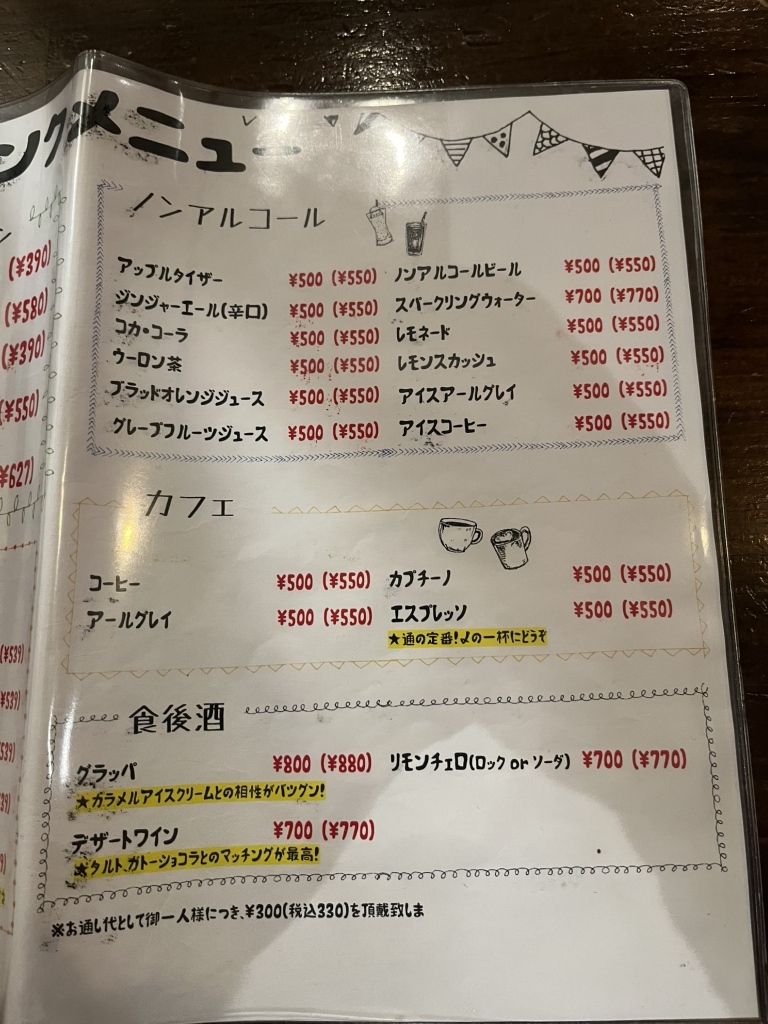 ンクメニュー
ン
(¥390)
(¥580)
(¥390)
(¥550)
¥627)
(¥539)
¥539)
539)
39)
9)
ノンアルコール
アップルタイザー ¥500 (¥550)
ジンジャーエール(辛口) ¥500 (¥550)
コカ・コーラ ¥500 (¥550)
ウーロン茶 ¥500 (¥550)
ブラッドオレンジジュース ¥500 (¥550)
グレープフルーツジュース ¥500 (¥550)
ノンアルコールビール ¥500 (¥550)
スパークリングウォーター ¥700 (¥770)
レモネード ¥500 (¥550)
レモンスカッシュ ¥500 (¥550)
アイスアールグレイ ¥500 (¥550)
アイスコーヒー ¥500 (¥550)
カフェ
コーヒー ¥500 (¥550)
アールグレイ ¥500 (¥550)
カプチーノ ¥500 (¥550)
エスプレッソ ¥500 (¥550)
★通の定番!〆の一杯にどうぞ
食後酒
グラッパ ¥800 (¥880)
★カラメルアイスクリームとの相性がバツグン!
デザートワイン ¥700 (¥770)
★タルト、ガトーショコラとのマッチングが最高!
リモンチェロ(ロック or ソーダ) ¥700 (¥770)
※お通し代として御一人様につき、¥300(税込330)を頂戴致しま